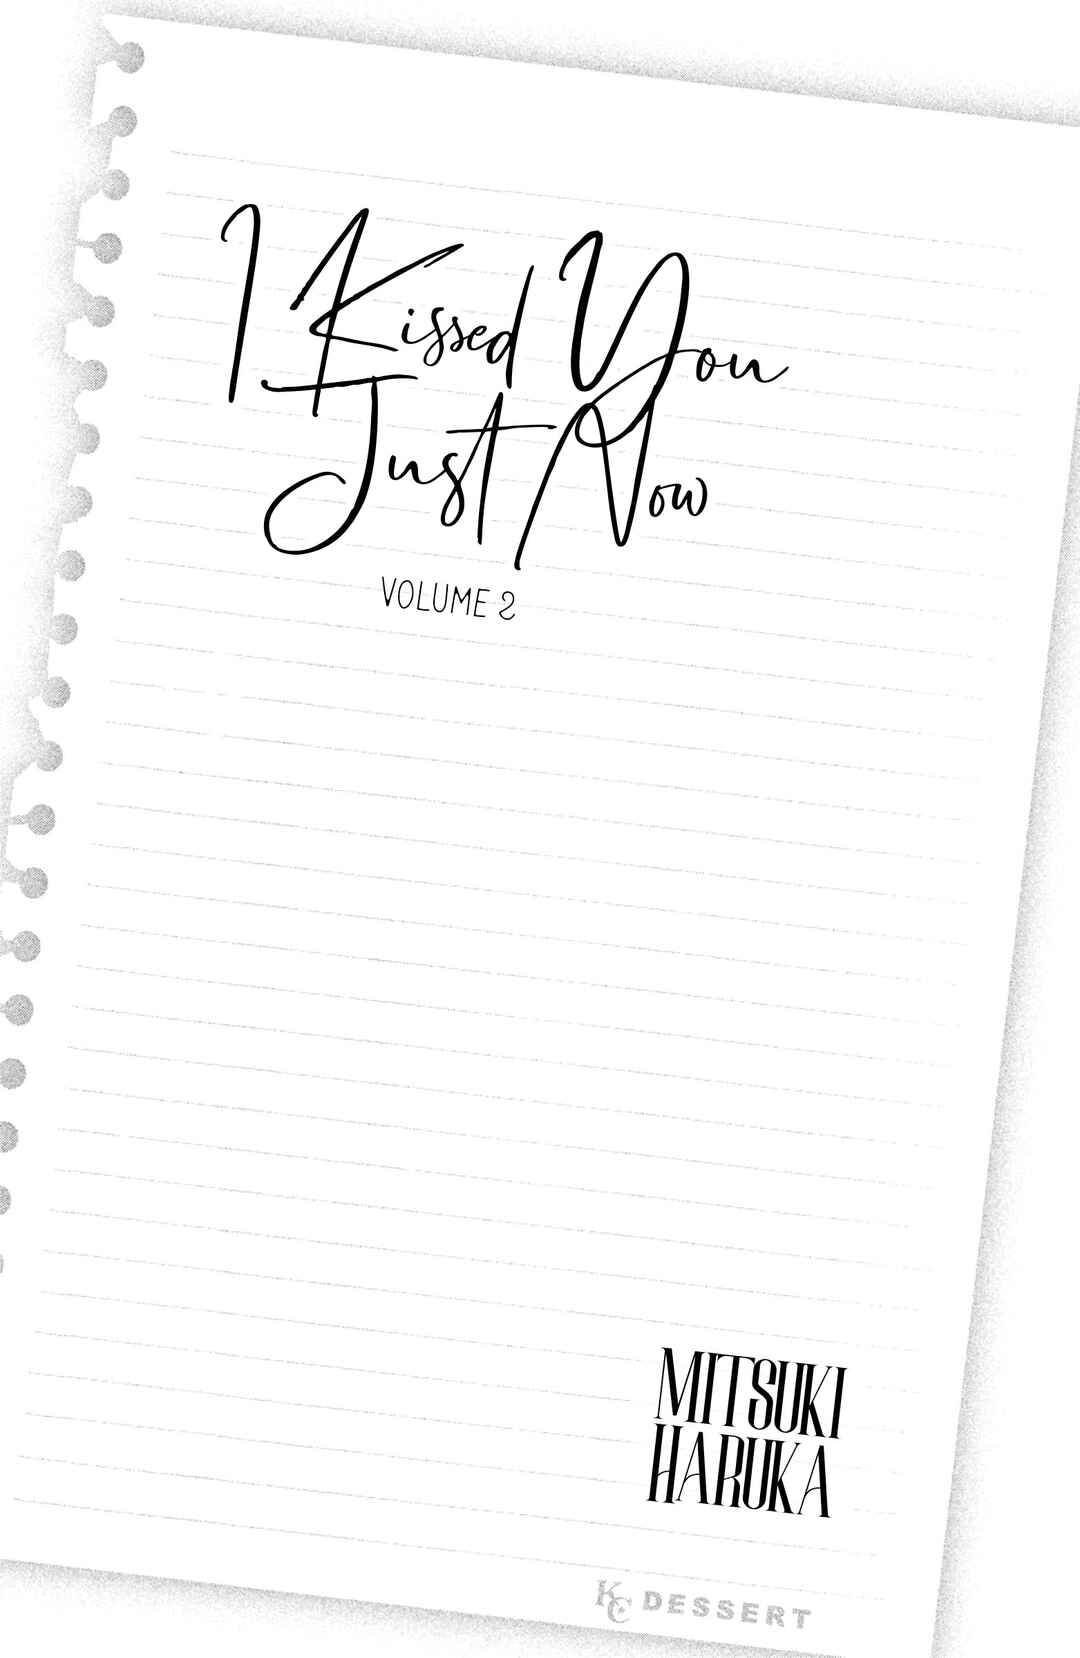 I Kissed You
Just Now
VOLUME 2
MITSUKI
HARUKA
KC DESSERT